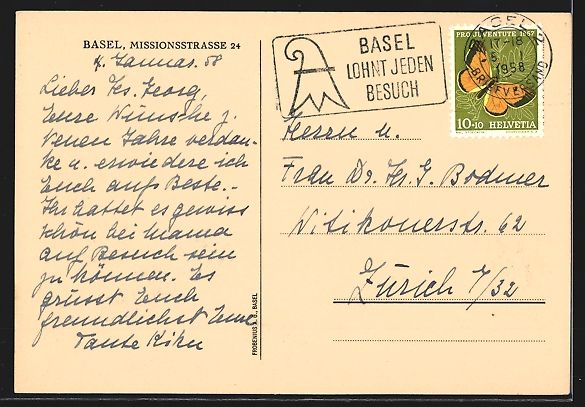 BASEL, MISSIONSSTRASSE 24
4. Januar. 58
Lieber Hr. Georg,
Eure Wünsche z.
Neuen Jahre verdan-
ke u. erwiedere ich
Euch aufs Beste. -
Ihr hattet es gewiss
schön bei Mama
auf Besuch sein
zu können. Es
grüsst Euch
freundlichst Eure
Tante Kiku
FROBENIUS A. G., BASEL
BASEL
LOHNT JEDEN
BESUCH
BASEL 2
1958
BRIEFVERSAND
PRO JUVENTUTE 1957
10+10 HELVETIA
Herrn u.
Frau Dr. Hr. G. Bodmer
Witikonerstr. 62
Zürich 7/32